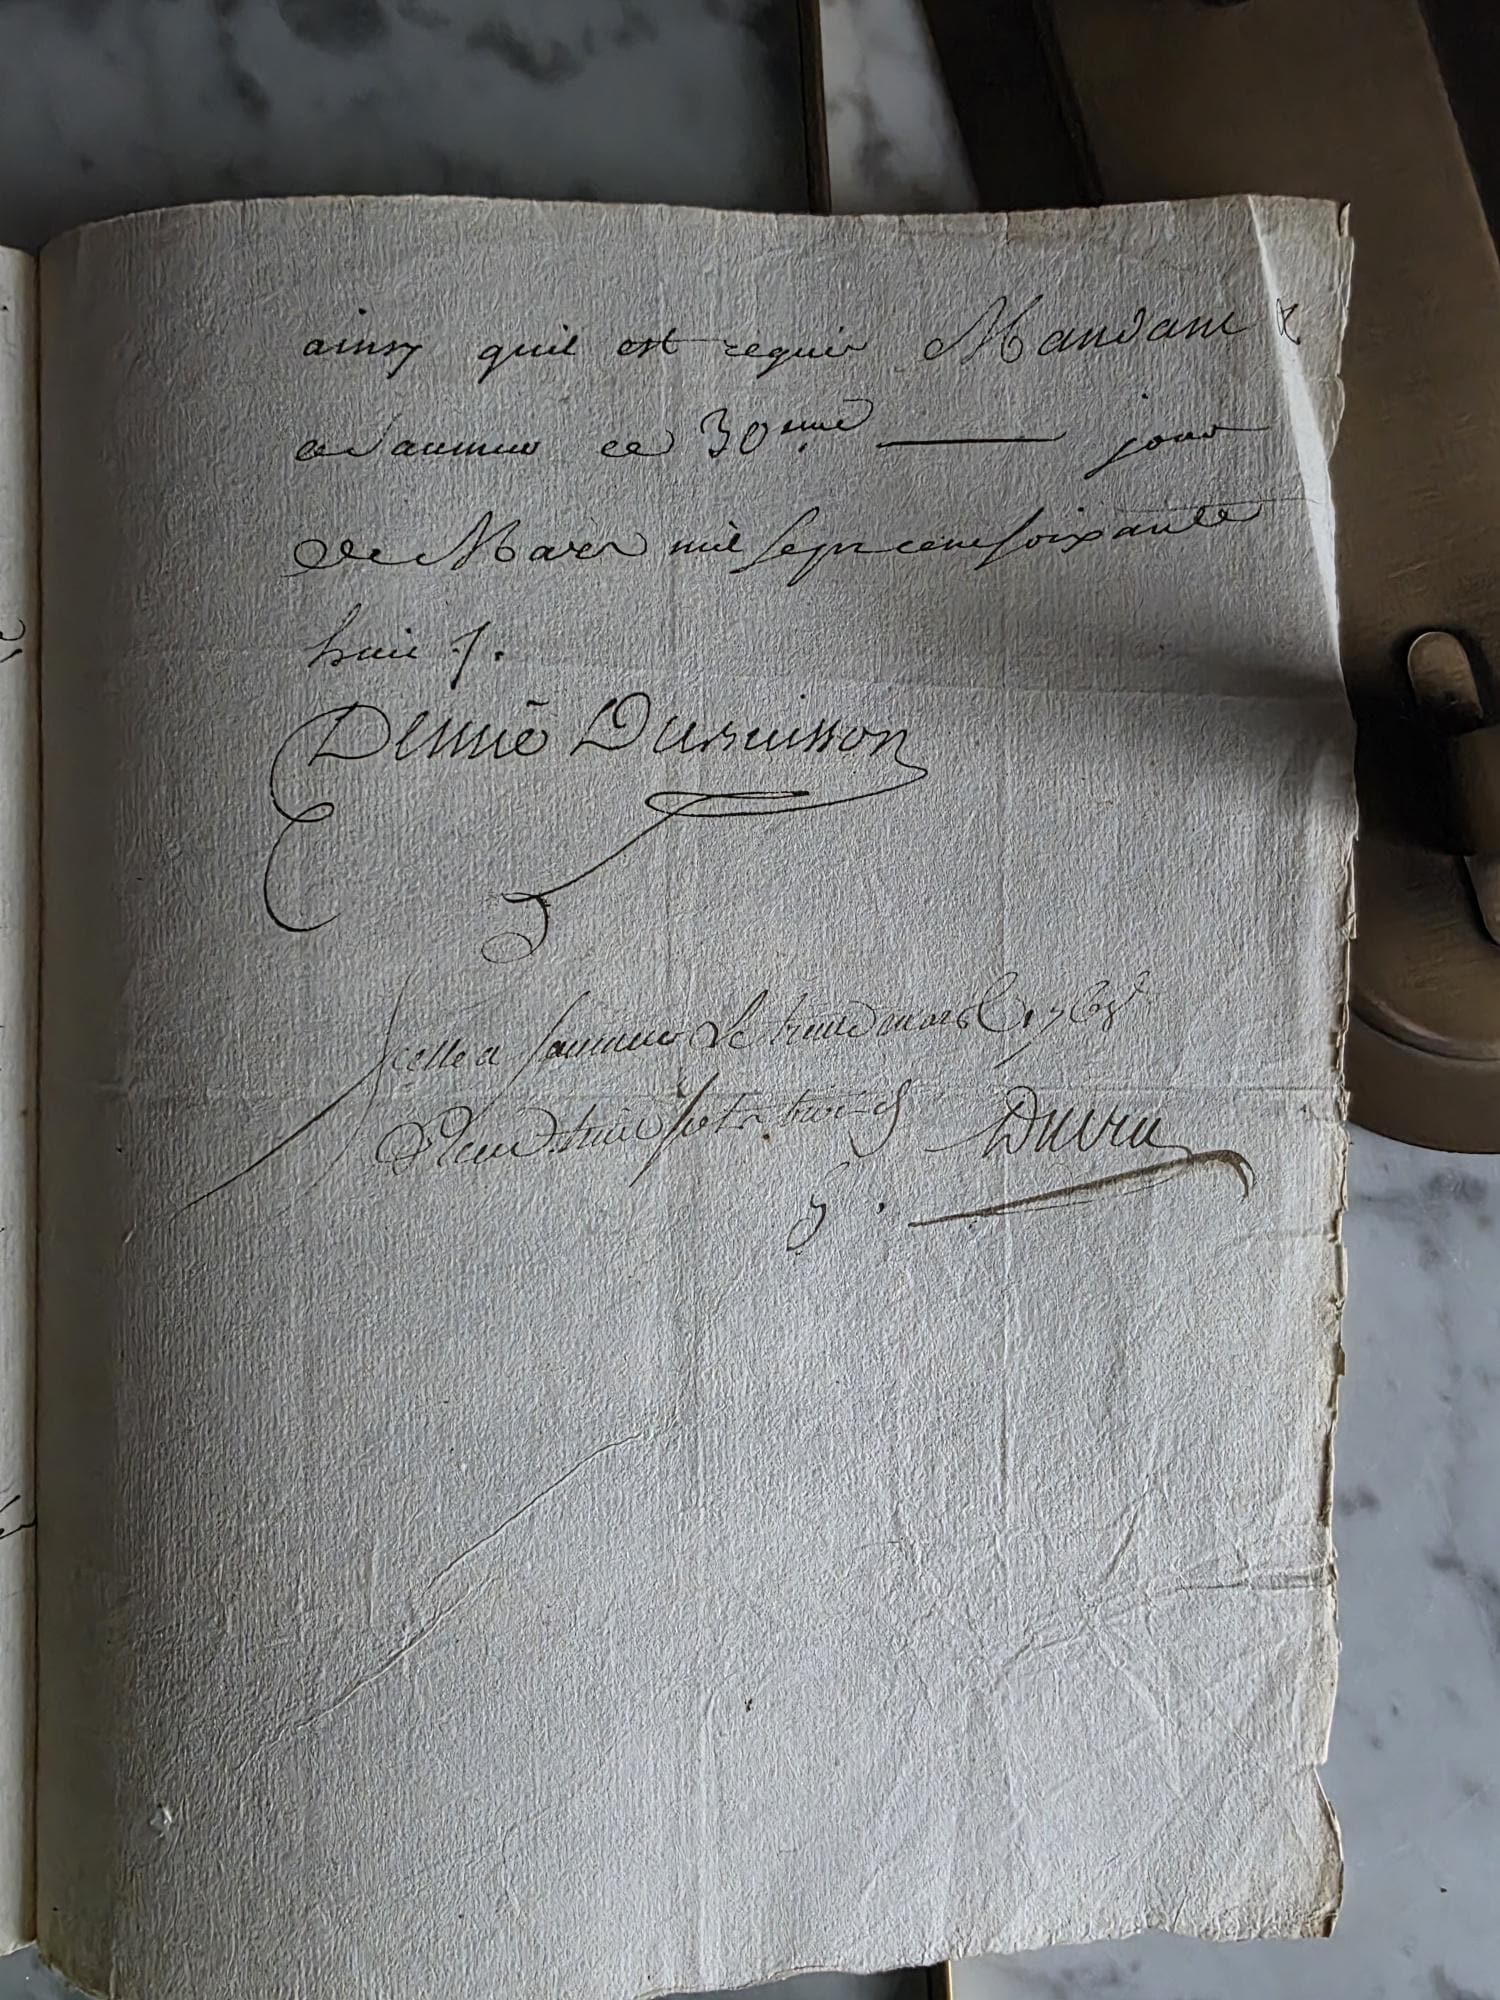 ainsy quil est requis Mandant &
a Saumur ce 30.eme ——— jour
de Mars mil sept cent soixante
huit ./.
Dennié Dubuisson
Scellé a Saumur le trente mars 1768
Recu huit sols trois d Duvau